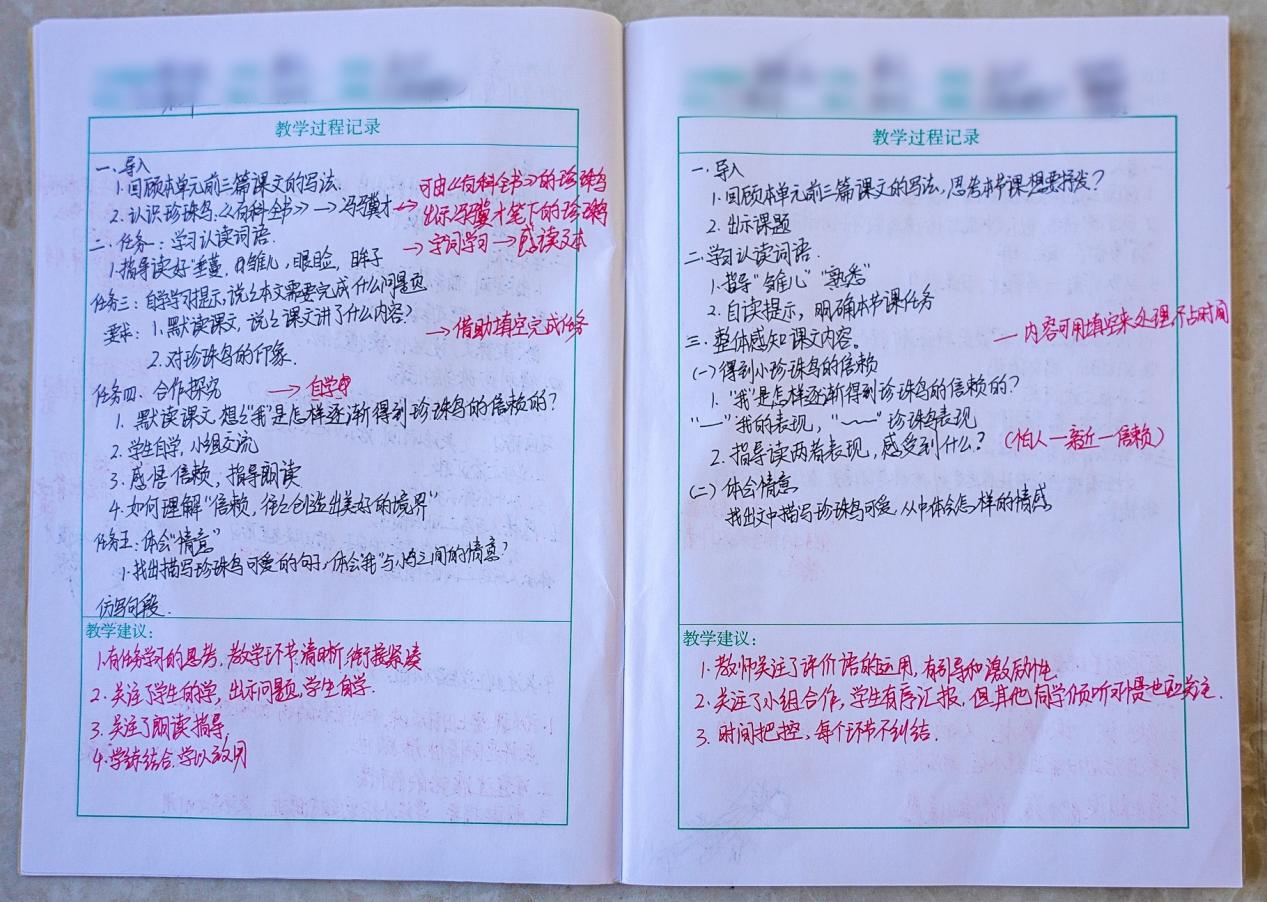 教学过程记录
一、导入
1.回顾本单元前三篇课文的写法.
2.认识珍珠鸟.《百科全书》→冯骥才
→可由《百科全书》的珍珠鸟
出示冯骥才笔下的珍珠鸟
→字词学习→感读文本
二、任务一:学习认读词语.
1.指导读好"垂蔓,雏儿,眼睑,眸子
任务三:自学学习提示,说说本文需要完成什么问题
要求:1.默读课文,说说课文讲了什么内容?
→借助填空完成任务
2.对珍珠鸟的印象.
任务四、合作探究 →自学中
1.默读课文,想想"我"是怎样逐渐得到珍珠鸟的信赖的?
2.学生自学,小组交流
3.感悟信赖,指导朗读
4.如何理解"信赖,往往创造出美好的境界"
任务五:体会"情意"
1.找出描写珍珠鸟可爱的句子,体会"我"与小鸟之间的情意?
仿写句段.
教学建议:
1.有任务学习的思考,教学环节清晰,衔接紧凑
2.关注了学生的学,出示问题,学生自学.
3.关注了朗读指导,
4.学练结合,学以致用
教学过程记录
一.导入
1.回顾本单元前三篇课文的写法,思考本节课想要抒发?
2.出示课题
二.学习认读词语.
1.指导"雏儿""熟悉"
2.自读提示,明确本节课任务
三.整体感知课文内容。
—内容可用填空来处理,不占时间
(一)得到小珍珠鸟的信赖
1."我"是怎样逐渐得到珍珠鸟的信赖的?
"—"我的表现,"﹏"珍珠鸟表现
2.指导读两者表现,感受到什么?(怕人—亲近—信赖)
(二)体会情意
找出文中描写珍珠鸟可爱,从中体会怎样的情感
教学建议:
1.教师关注了评价语的运用,有引导和激励性.
2.关注了小组合作,学生有序汇报,但其他同学倾听习惯也应关注.
3.时间把控,每个环节不纠结.